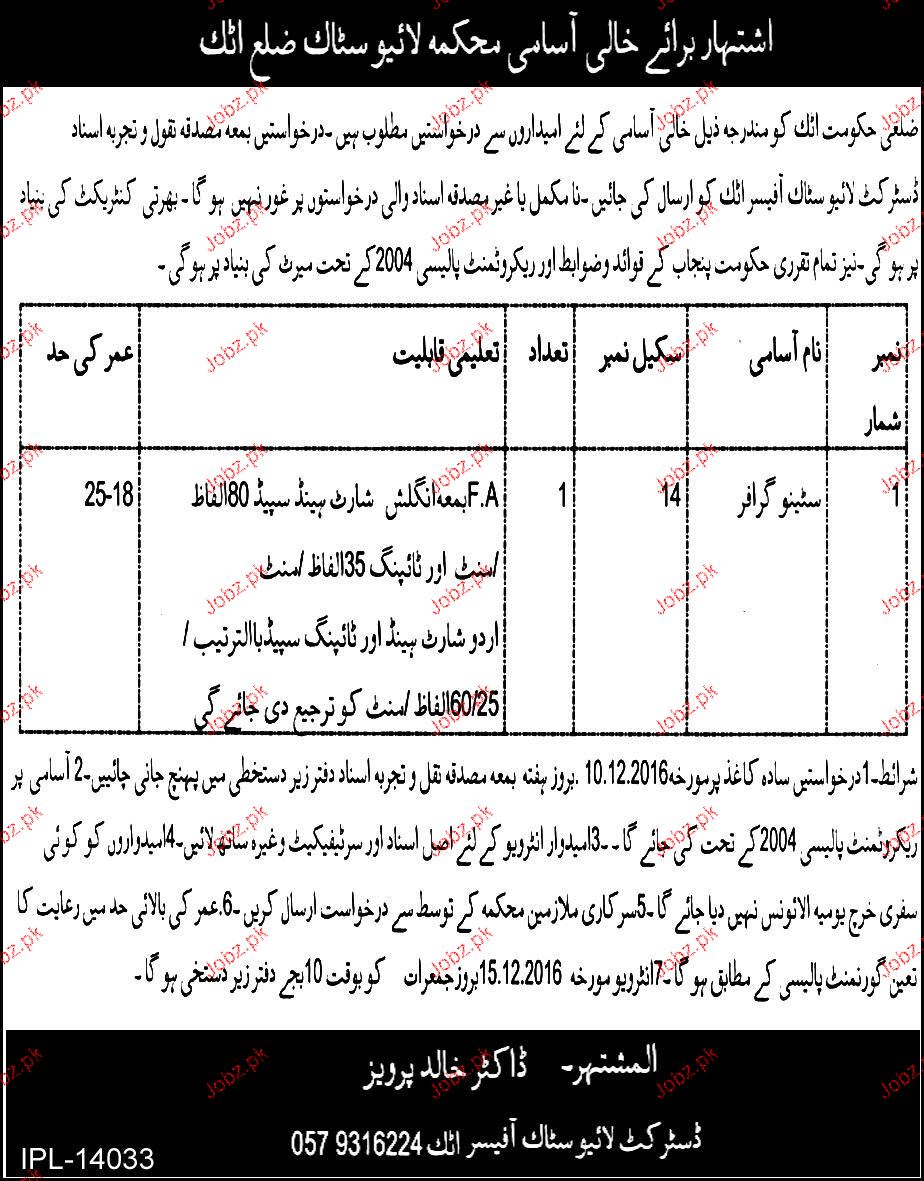 اشتہار برائے خالی آسامی محکمہ لائیو سٹاک ضلع اٹک
ضلعی حکومت اٹک کو مندرجہ ذیل خالی آسامی کے لئے امیداروں سے درخواستیں مطلوب ہیں ۔درخواستیں بمعہ مصدقہ نقول و تجربہ اسناد
ڈسٹرکٹ لائیو سٹاک آفیسر اٹک کو ارسال کی جائیں ۔نا مکمل یا غیر مصدقہ اسناد والی درخواستوں پر غور نہیں ہو گا ۔ بھرتی کنٹریکٹ کی بنیاد
پر ہو گی ۔نیز تمام تقرری حکومت پنجاب کے قوائد وضوابط اور ریکروٹمنٹ پالیسی 2004کے تحت میرٹ کی بنیاد پر ہو گی ۔
نمبر شمار	نام آسامی	سکیل نمبر	تعداد	تعلیمی قابلیت	عمر کی حد
1	سٹینو گرافر	14	1	F.Aبمعہ انگلش شارٹ ہینڈ سپیڈ 80الفاظ	25-18
/منٹ اور ٹائپنگ 35الفاظ /منٹ
اردو شارٹ ہینڈ اور ٹائپنگ سپیڈ باالترتیب /
60/25الفاظ /منٹ کو ترجیع دی جائے گی
شرائط ۔1درخواستیں سادہ کاغذ پر مورخہ 10.12.2016 .بروز ہفتہ بمعہ مصدقہ نقل و تجربہ اسناد دفتر زیر دستخطی میں پہنچ جانی چائیں ۔2 آسامی پر
ریکروٹمنٹ پالیسی 2004کے تحت کی جائے گا ۔ ۔3امیدوار انٹرویو کے لئے اصل اسناد اور سرٹیفیکیٹ وغیرہ ساتھ لائیں ۔4امیدواروں کو کوئی
سفری خرچ یومیہ الائونس نہیں دیا جائے گا ۔5سرکاری ملازمین محکمہ کے توسط سے درخواست ارسال کریں ۔6.عمر کی بالائی حد میں رعایت کا
تعین گورنمنٹ پالیسی کے مطابق ہو گا ۔7انٹرویو مورخہ 15.12.2016بروز جمعرات کو بوقت 10بجے دفتر زیر دستخی ہو گا ۔
المشتہر۔ ڈاکٹر خالد پرویز
ڈسٹرکٹ لائیو سٹاک آفیسر اٹک 057 9316224
IPL-14033
Jobz.pk